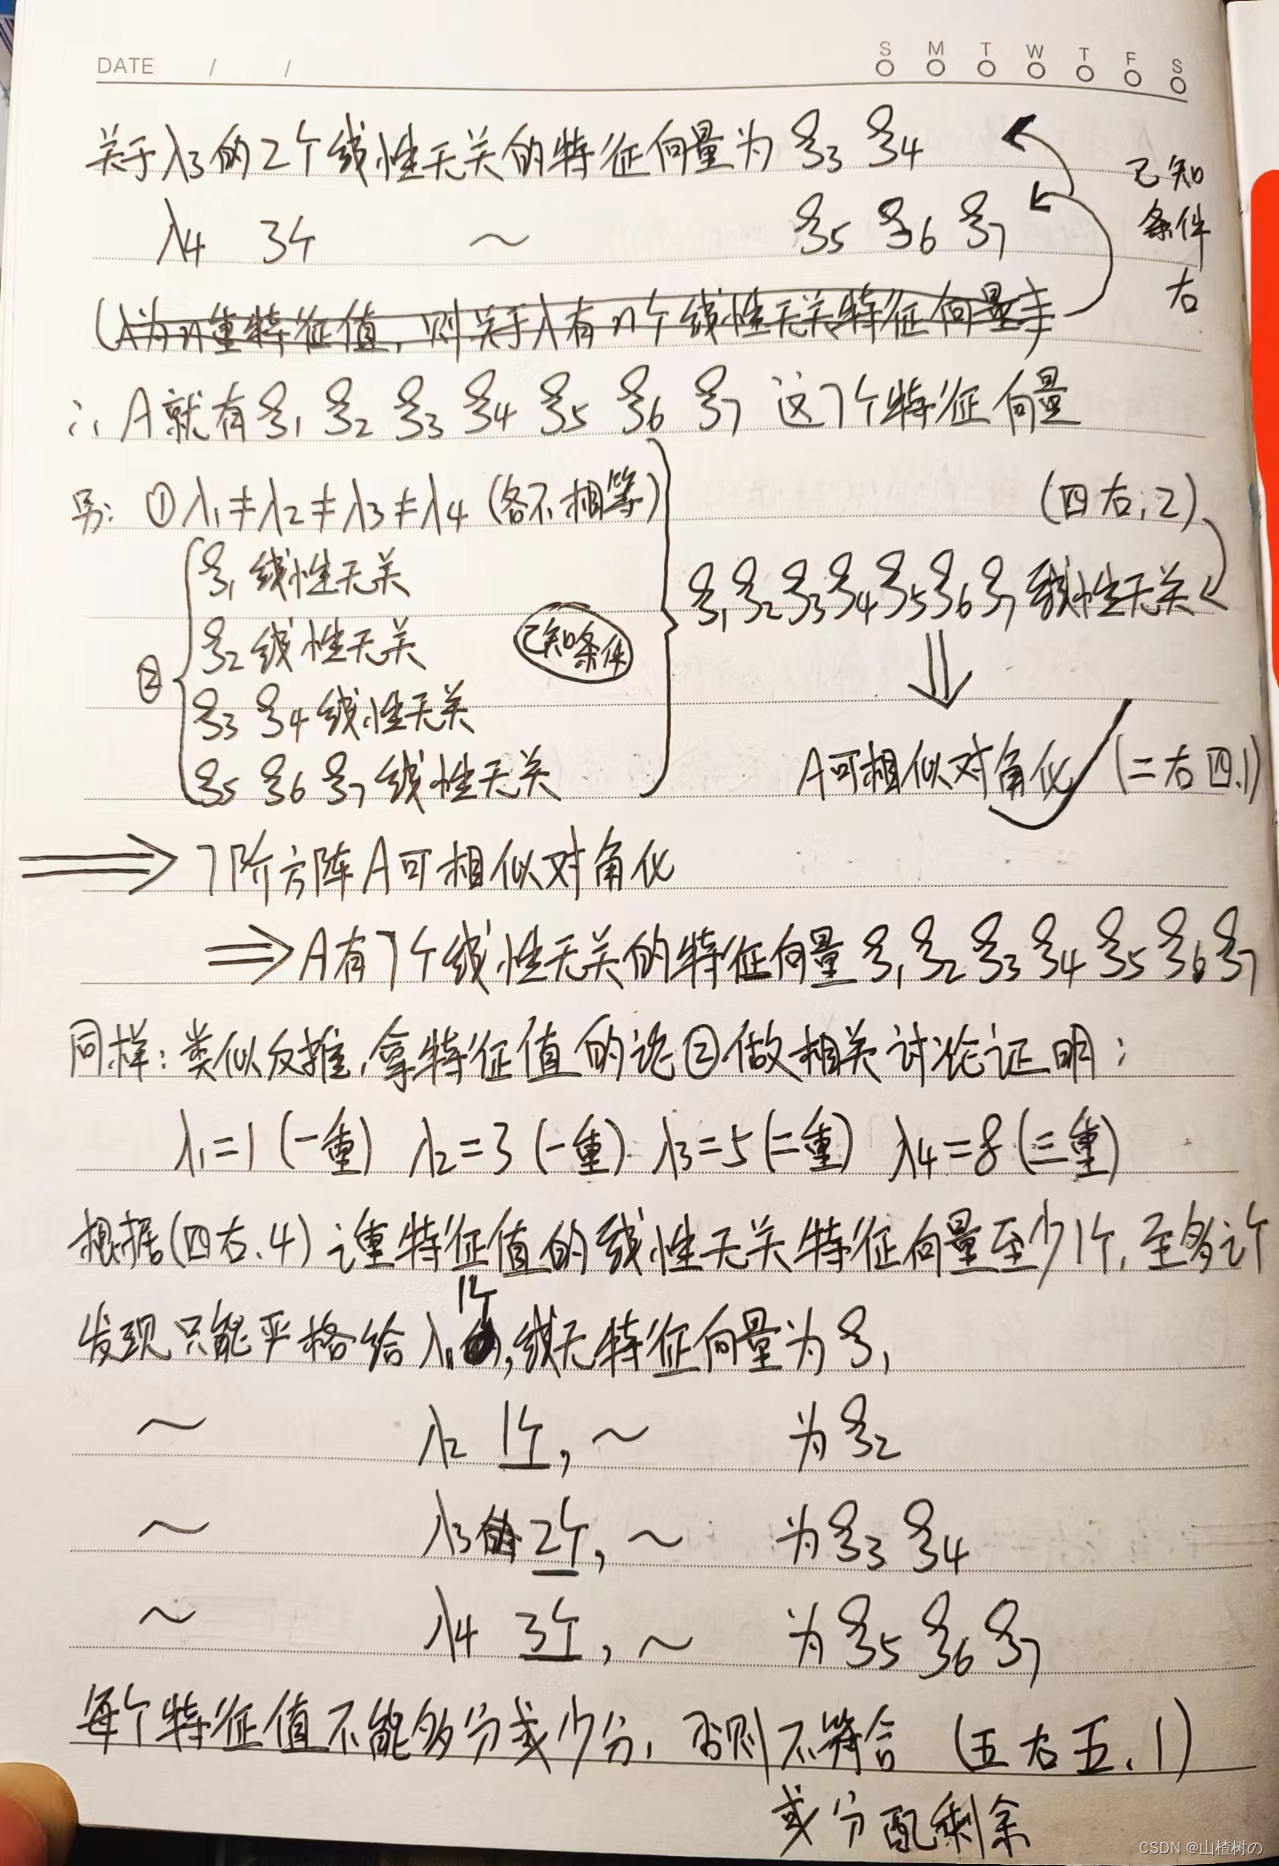 DATE / /
S M T W T F S
关于λ3的2个线性无关的特征向量为ξ3 ξ4
已知条件右
λ4 3个 ~ ξ5 ξ6 ξ7
(λ为n重特征值,则关于λ有n个线性无关特征向量
∴A就有ξ1 ξ2 ξ3 ξ4 ξ5 ξ6 ξ7 这7个特征向量
另: ①λ1≠λ2≠λ3≠λ4 (各不相等) (四右,2)
② ξ1 线性无关
ξ2 线性无关
ξ3 ξ4 线性无关
ξ5 ξ6 ξ7 线性无关
已知条件
ξ1 ξ2 ξ3 ξ4 ξ5 ξ6 ξ7 线性无关
⇓
A可相似对角化 (二右四.1)
⇒ 7阶方阵A可相似对角化
⇒A有7个线性无关的特征向量ξ1 ξ2 ξ3 ξ4 ξ5 ξ6 ξ7
同样:类似反推,拿特征值的论②做相关讨论证明:
λ1=1(一重) λ2=3(一重) λ3=5(二重) λ4=8(三重)
根据(四右.4) i重特征值的线性无关特征向量至少1个,至多i个
发现只能严格给λ1 1个,线无特征向量为ξ1
~ λ2 1个,~ 为ξ2
~ λ3 2个,~ 为ξ3 ξ4
~ λ4 3个,~ 为ξ5 ξ6 ξ7
每个特征值不能多分或少分,否则不符合 (五右五.1)
或分配剩余
CSDN @山楂树の